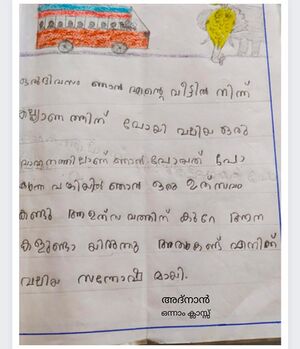 ഒരുദിവസം ഞാൻ എന്റെ വീട്ടിൽ നിന്ന്
കല്യാണത്തിന് പോയി വലിയ ഒരു
വാഹനത്തിലാണ് ഞാൻ പോയത് പോ
കുന്ന വഴിയിൽ ഞാൻ ഒരു ഉത്സവം
കണ്ടു ആ ഉത്സവത്തിന് കുറേ ആന
കളുണ്ടായിരുന്നു അതുകണ്ട് എനിക്ക്
വലിയ സന്തോഷമായി.
അദ്നാൻ
ഒന്നാം ക്ലാസ്സ്